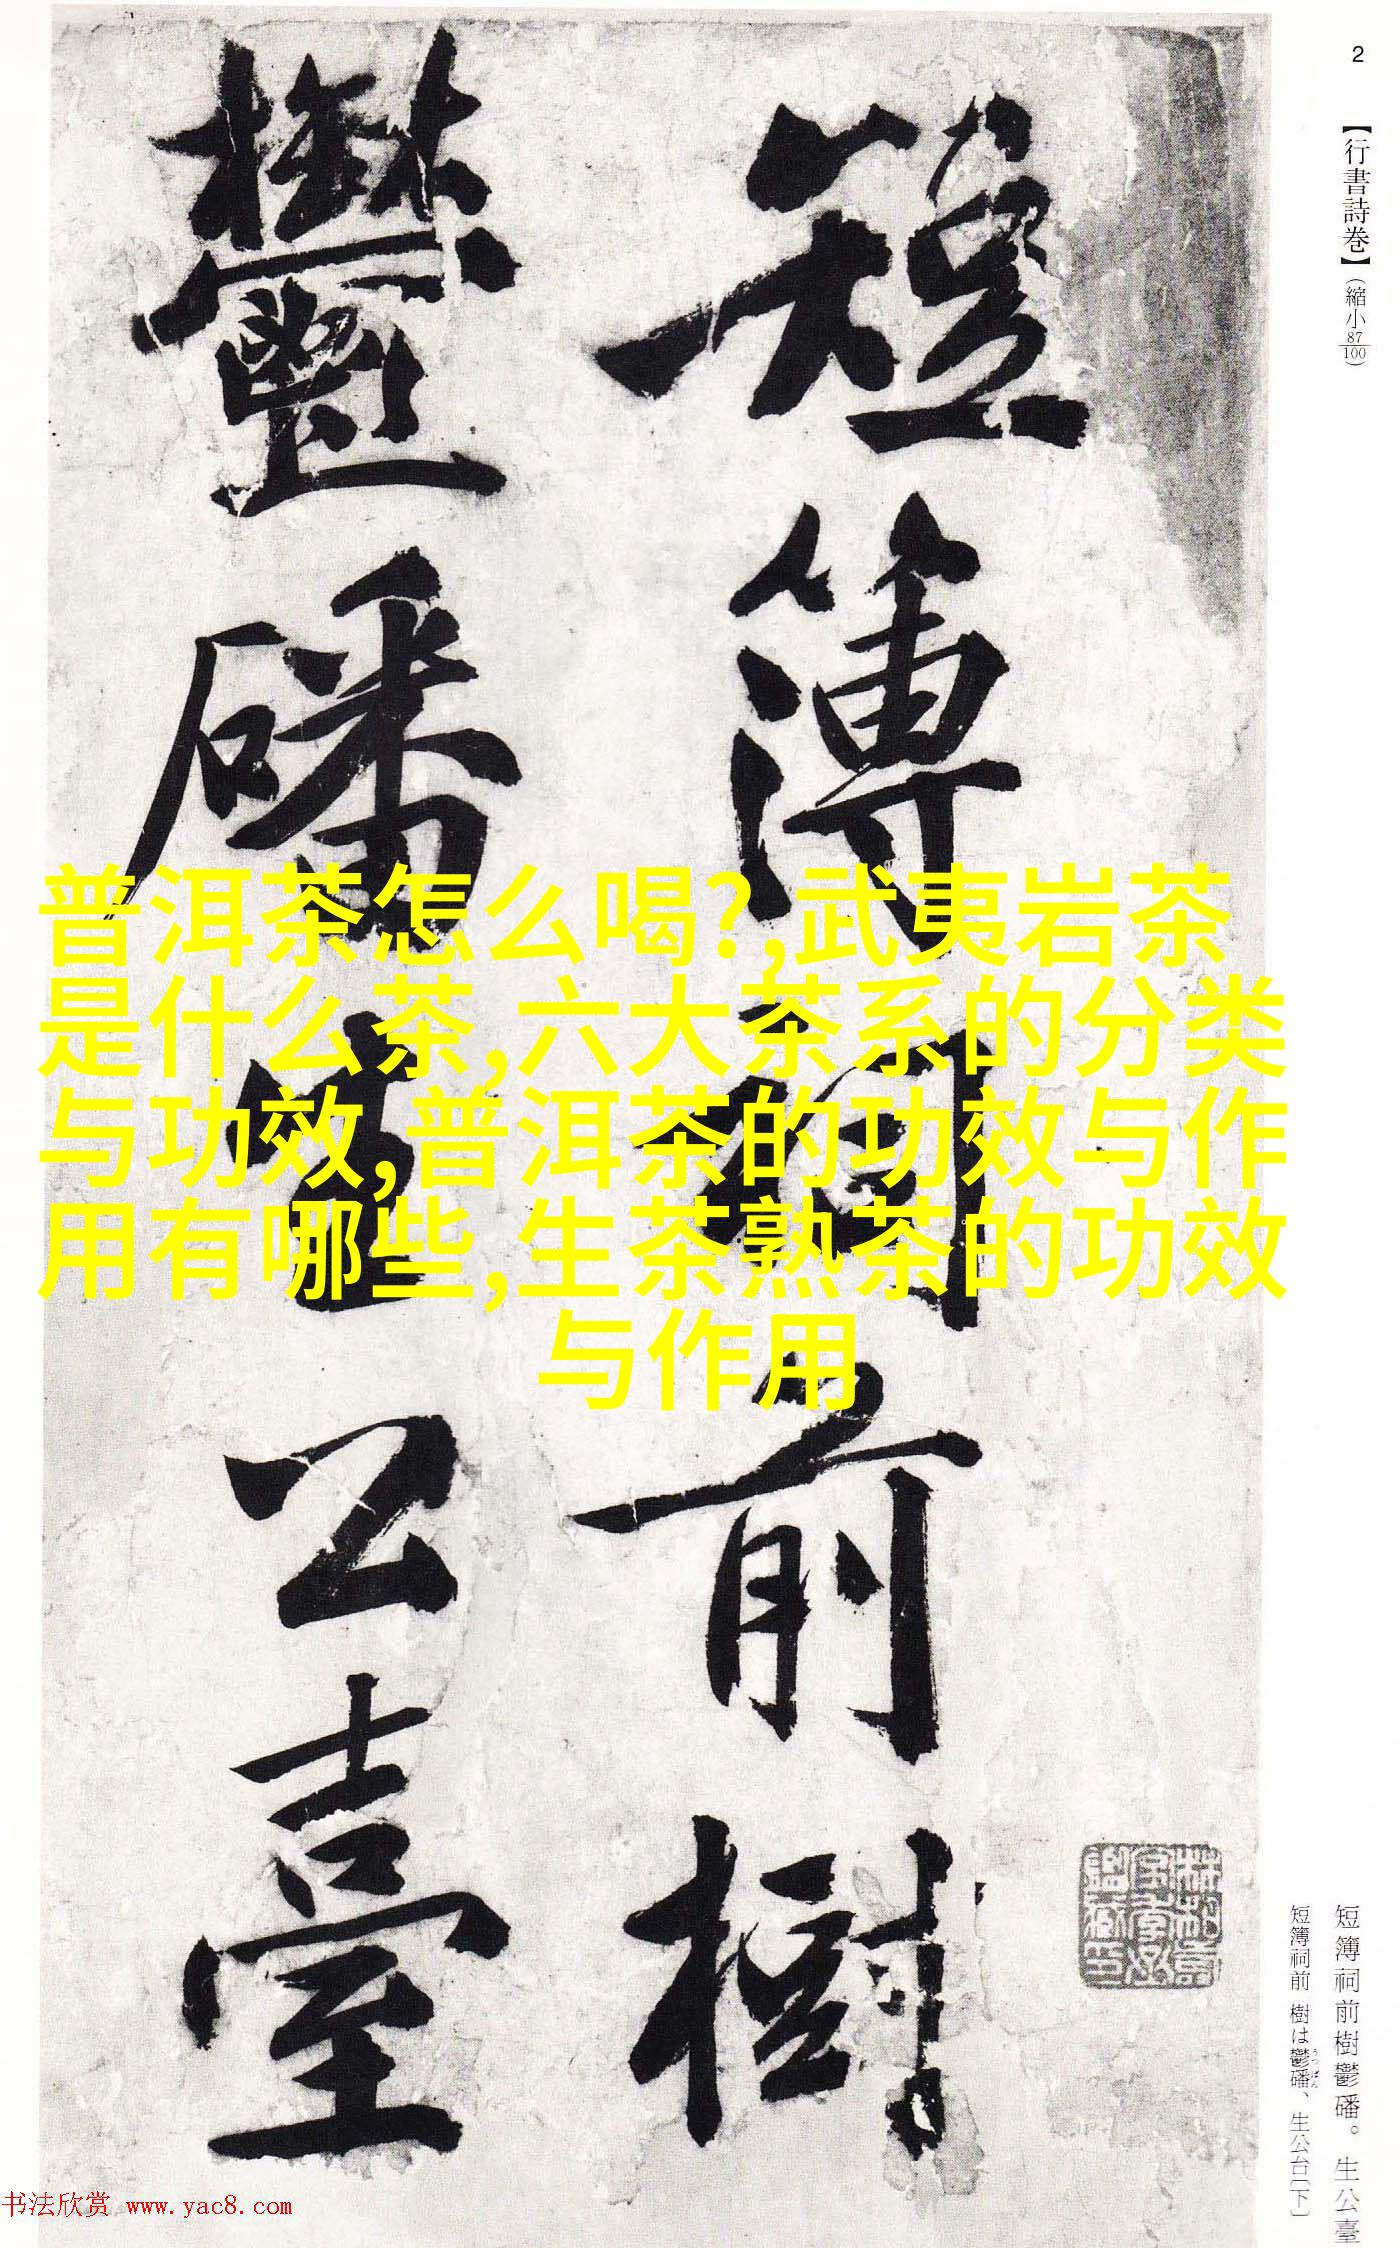 2
【行書詩巻】(縮小87/100)
短簿祠前樹
鬱磻生公臺
普洱茶怎么喝?,武夷岩茶
是什么茶,六大茶系的分类
与功效,普洱茶的功效与作
用有哪些,生茶熟茶的功效
与作用
短簿祠前樹鬱磻。生公臺
短簿祠前 樹は鬱磻、生公台(下)
うつばん
书法欣赏 www.yac8.com